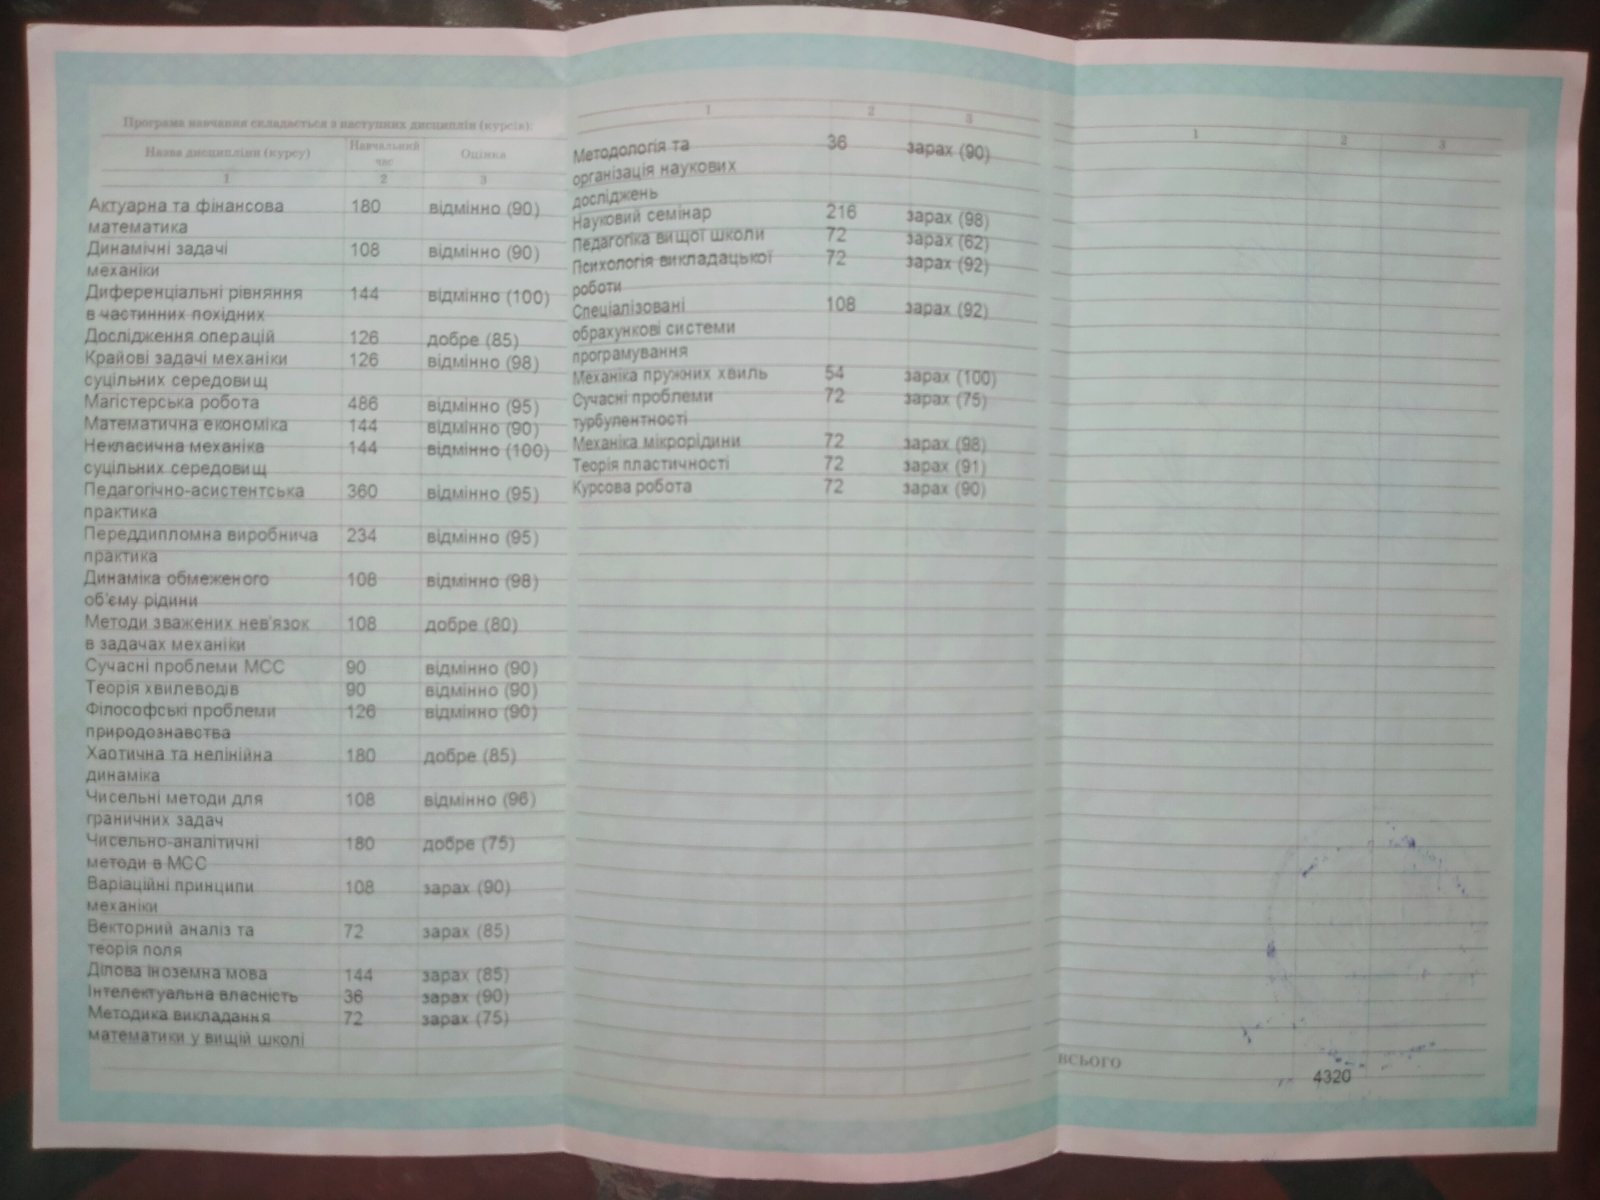 Програма навчання складається з наступних дисциплін (курсів):
Назва дисципліни (курсу) Навчальний час Оцінка
1 2 3
Актуарна та фінансова 180 відмінно (90)
математика
Динамічні задачі 108 відмінно (90)
механіки
Диференціальні рівняння 144 відмінно (100)
в частинних похідних
Дослідження операцій 126 добре (85)
Крайові задачі механіки 126 відмінно (98)
суцільних середовищ
Магістерська робота 486 відмінно (95)
Математична економіка 144 відмінно (90)
Некласична механіка 144 відмінно (100)
суцільних середовищ
Педагогічно-асистентська 360 відмінно (95)
практика
Переддипломна виробнича 234 відмінно (95)
практика
Динаміка обмеженого 108 відмінно (98)
об'єму рідини
Методи зважених нев'язок 108 добре (80)
в задачах механіки
Сучасні проблеми МСС 90 відмінно (90)
Теорія хвилеводів 90 відмінно (90)
Філософські проблеми 126 відмінно (90)
природознавства
Хаотична та нелінійна 180 добре (85)
динаміка
Чисельні методи для 108 відмінно (96)
граничних задач
Чисельно-аналітичні 180 добре (75)
методи в МСС
Варіаційні принципи 108 зарах (90)
механіки
Векторний аналіз та 72 зарах (85)
теорія поля
Ділова іноземна мова 144 зарах (85)
Інтелектуальна власність 36 зарах (90)
Методика викладання 72 зарах (75)
математики у вищій школі
1 2 3
Методологія та 36 зарах (90)
організація наукових
досліджень
Науковий семінар 216 зарах (98)
Педагогіка вищої школи 72 зарах (62)
Психологія викладацької 72 зарах (92)
роботи
Спеціалізовані 108 зарах (92)
обрахункові системи
програмування
Механіка пружних хвиль 54 зарах (100)
Сучасні проблеми 72 зарах (75)
турбулентності
Механіка мікрорідини 72 зарах (98)
Теорія пластичності 72 зарах (91)
Курсова робота 72 зарах (90)
1 2 3
ВСЬОГО
4320